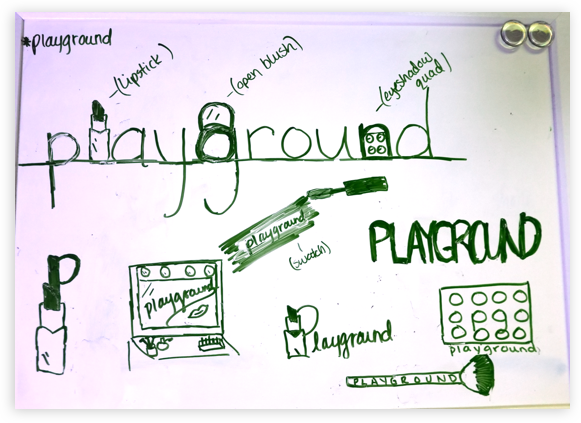 *playground
-(lipstick)
-(open blush)
-(eyeshadow quad)
playground
playground
(swatch)
PLAYGROUND
P
playground
Playground
playground
PLAYGROUND